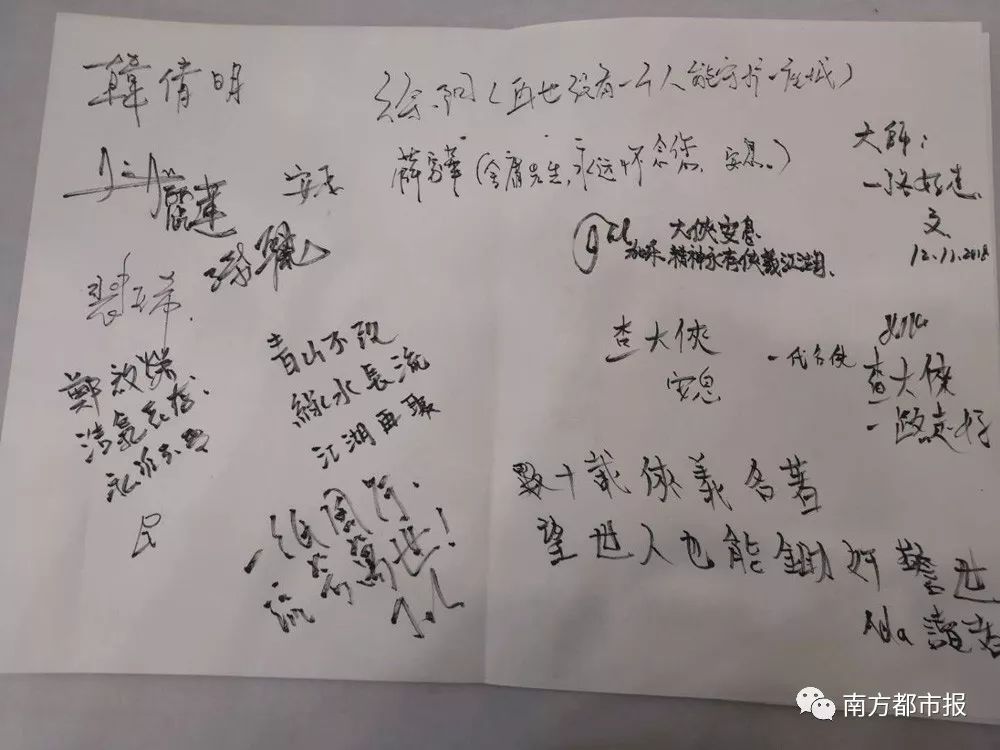 韓倩明
麗達
安息
鄭
浩氣長存
永垂不朽
民
青山不改
綠水長流
江湖再聚
一紙風行
流芳萬世!
(再也没有一个人能守护一座城)
薛家華(金庸先生,永远怀念您,安息。)
大俠安息
精神永存俠義江湖
大師:
一路好走
文
12.11.2018
查大俠
安息
一代名俠
查大俠
一路走好
數十載俠義名著
望世人也能鋤奸警世
Ada
南方都市报